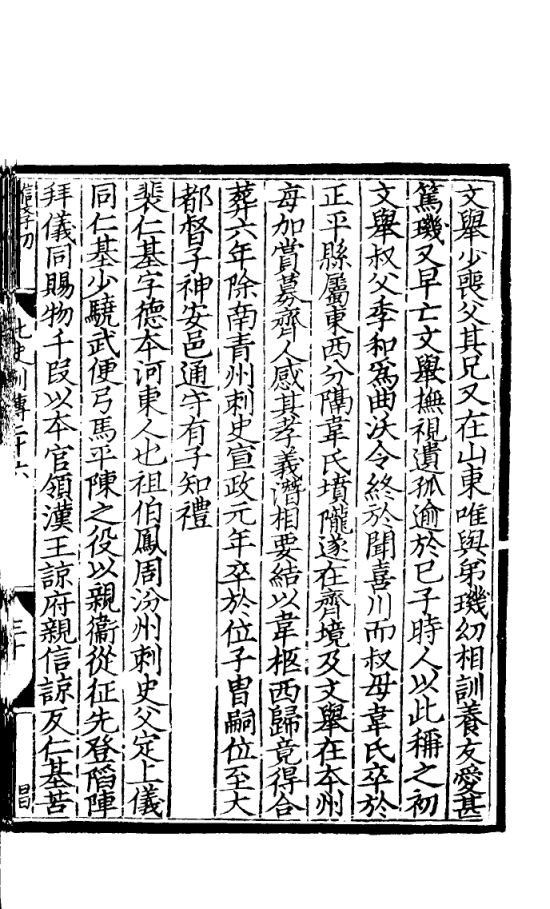 文舉少喪父其兄又在山東唯與弟璣幼相訓養友愛甚
篤璣又早亡文舉撫視遺孤逾於已子時人以此稱之初
文舉叔父季和爲曲沃令終於聞喜川而叔母韋氏卒於
正平縣屬東西分隔韋氏墳隴遂在齊境及文舉在本州
每加賞募齊人感其孝義潛相要結以韋柩西歸竟得合
葬六年除南青州刺史宣政元年卒於位子胄嗣位至大
都督子神安邑通守有子知禮
裴仁基字德本河東人也祖伯鳳周汾州刺史父定上儀
同仁基少驍武便弓馬平陳之役以親衞從征先登陷陣
拜儀同賜物千段以本官領漢王諒府親信諒反仁基苦
列傳二十六
三十
昌